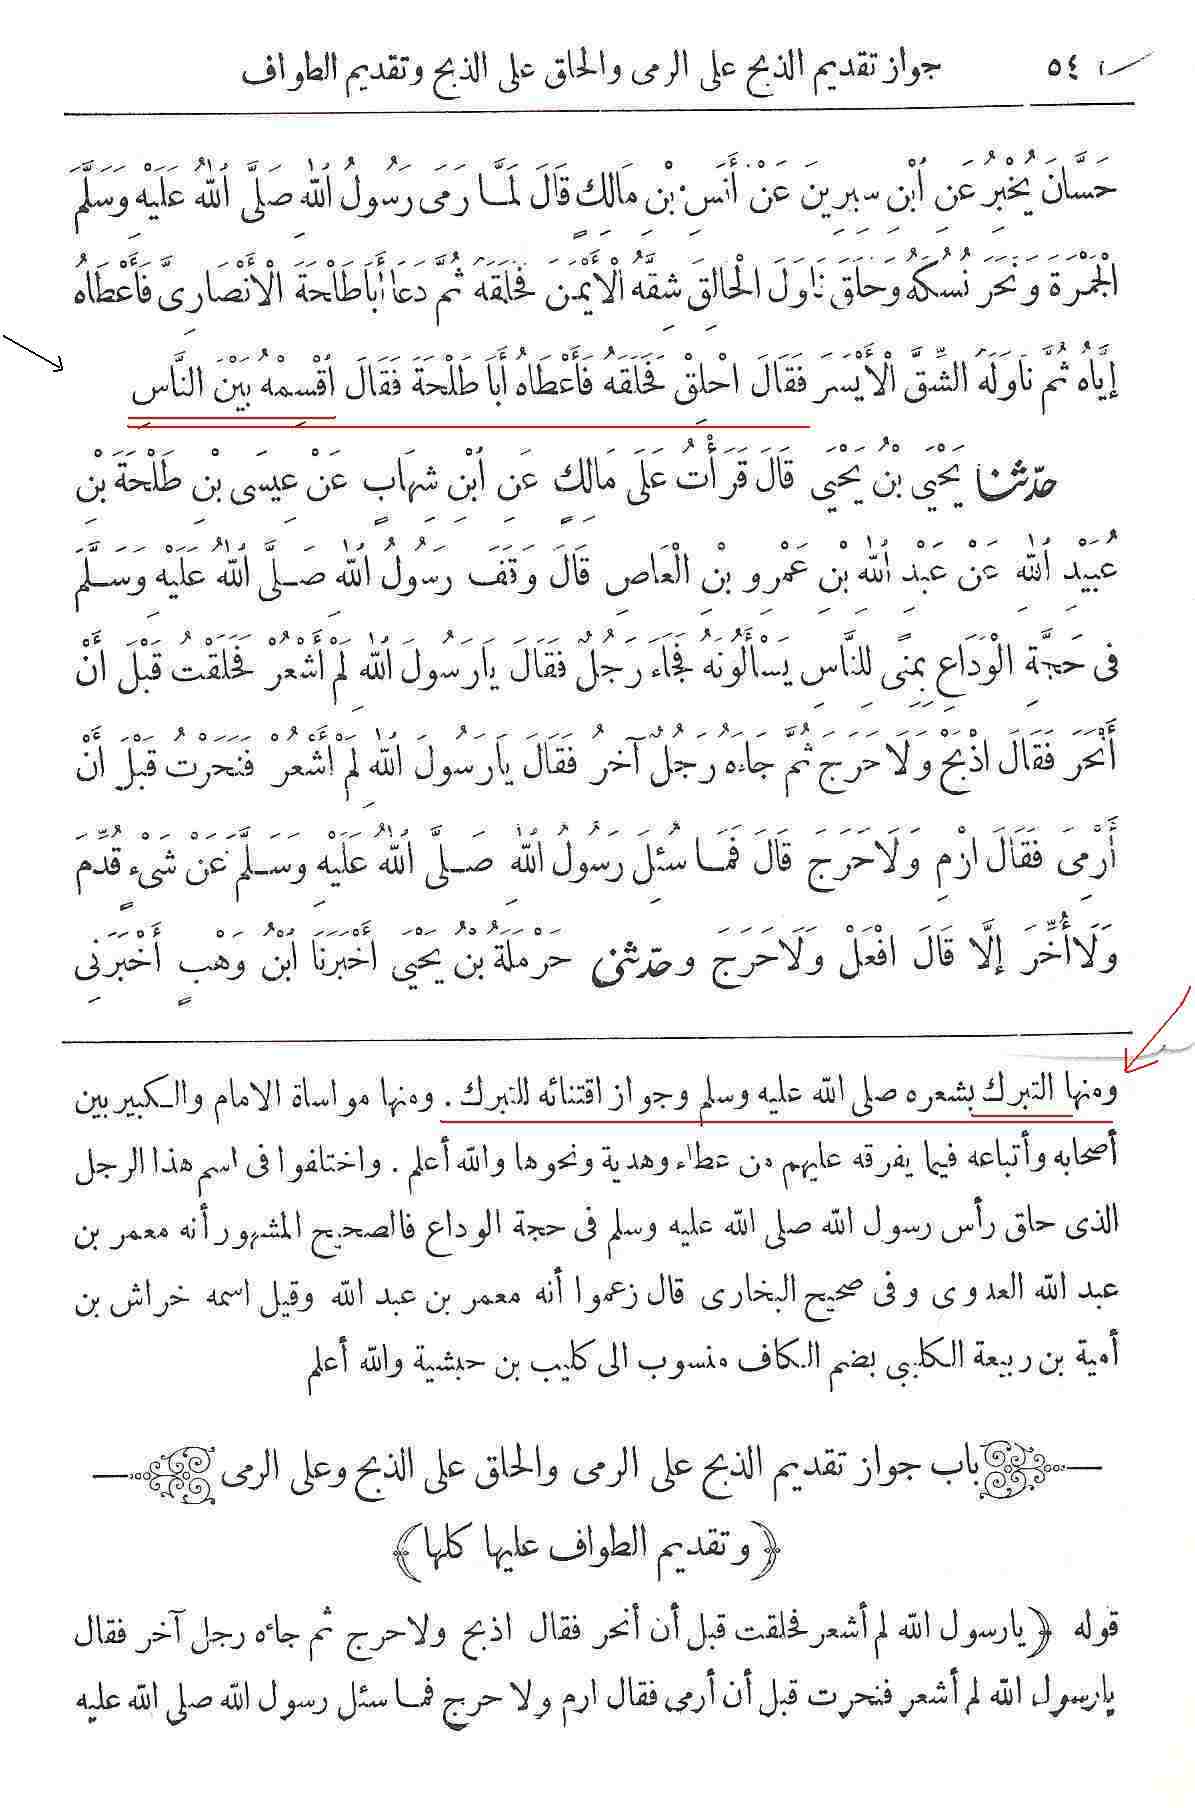 ٥٤ جواز تقديم الذبح على الرمى والحلق على الذبح وتقديم الطواف
حَسَّانَ يُخْبِرُ عَنِ ابْنِ سِيرِينَ عَنْ أَنَسِ بْنِ مَالِكٍ قَالَ لَمَّا رَمَى رَسُولُ اللهِ صَلَّى اللهُ عَلَيْهِ وَسَلَّمَ
الْجَمْرَةَ وَنَحَرَ نُسُكَهُ وَحَلَقَ نَاوَلَ الْحَالِقَ شِقَّهُ الْأَيْمَنَ فَحَلَقَهُ ثُمَّ دَعَا أَبَا طَلْحَةَ الْأَنْصَارِىَّ فَأَعْطَاهُ
إِيَّاهُ ثُمَّ نَاوَلَهُ الشِّقَّ الْأَيْسَرَ فَقَالَ احْلِقْ فَحَلَقَهُ فَأَعْطَاهُ أَبَا طَلْحَةَ فَقَالَ اقْسِمْهُ بَيْنَ النَّاسِ
حدّثنا يَحْيَى بْنُ يَحْيَى قَالَ قَرَأْتُ عَلَى مَالِكٍ عَنِ ابْنِ شِهَابٍ عَنْ عِيسَى بْنِ طَلْحَةَ بْنِ
عُبَيْدِ اللهِ عَنْ عَبْدِ اللهِ بْنِ عَمْرِو بْنِ الْعَاصِ قَالَ وَقَفَ رَسُولُ اللهِ صَلَّى اللهُ عَلَيْهِ وَسَلَّمَ
فِى حَجَّةِ الْوَدَاعِ بِمِنًى لِلنَّاسِ يَسْأَلُونَهُ فَجَاءَ رَجُلٌ فَقَالَ يَا رَسُولَ اللهِ لَمْ أَشْعُرْ فَحَلَقْتُ قَبْلَ أَنْ
أَنْحَرَ فَقَالَ اذْبَحْ وَلَا حَرَجَ ثُمَّ جَاءَهُ رَجُلٌ آخَرُ فَقَالَ يَا رَسُولَ اللهِ لَمْ أَشْعُرْ فَنَحَرْتُ قَبْلَ أَنْ
أَرْمِىَ فَقَالَ ارْمِ وَلَا حَرَجَ قَالَ فَمَا سُئِلَ رَسُولُ اللهِ صَلَّى اللهُ عَلَيْهِ وَسَلَّمَ عَنْ شَىْءٍ قُدِّمَ
وَلَا أُخِّرَ إِلَّا قَالَ افْعَلْ وَلَا حَرَجَ وحدّثنى حَرْمَلَةُ بْنُ يَحْيَى أَخْبَرَنَا ابْنُ وَهْبٍ أَخْبَرَنِى
ومنها التبرك بشعره صلى الله عليه وسلم وجواز اقتنائه للتبرك . ومنها مواساة الامام والكبير بين
أصحابه وأتباعه فيما يفرقه عليهم من عطاء وهدية ونحوها والله أعلم . واختلفوا فى اسم هذا الرجل
الذى حلق رأس رسول الله صلى الله عليه وسلم فى حجة الوداع فالصحيح المشهور أنه معمر بن
عبد الله العدوى وفى صحيح البخارى قال زعموا أنه معمر بن عبد الله وقيل اسمه خراش بن
أمية بن ربيعة الكليبى بضم الكاف منسوب الى كليب بن حبشية والله أعلم
باب جواز تقديم الذبح على الرمى والحلق على الذبح وعلى الرمى
﴿ وتقديم الطواف عليها كلها ﴾
قوله ﴿ يارسول الله لم أشعر فحلقت قبل أن أنحر فقال اذبح ولا حرج ثم جاءه رجل آخر فقال
يارسول الله لم أشعر فنحرت قبل أن أرمى فقال ارم ولا حرج فما سئل رسول الله صلى الله عليه